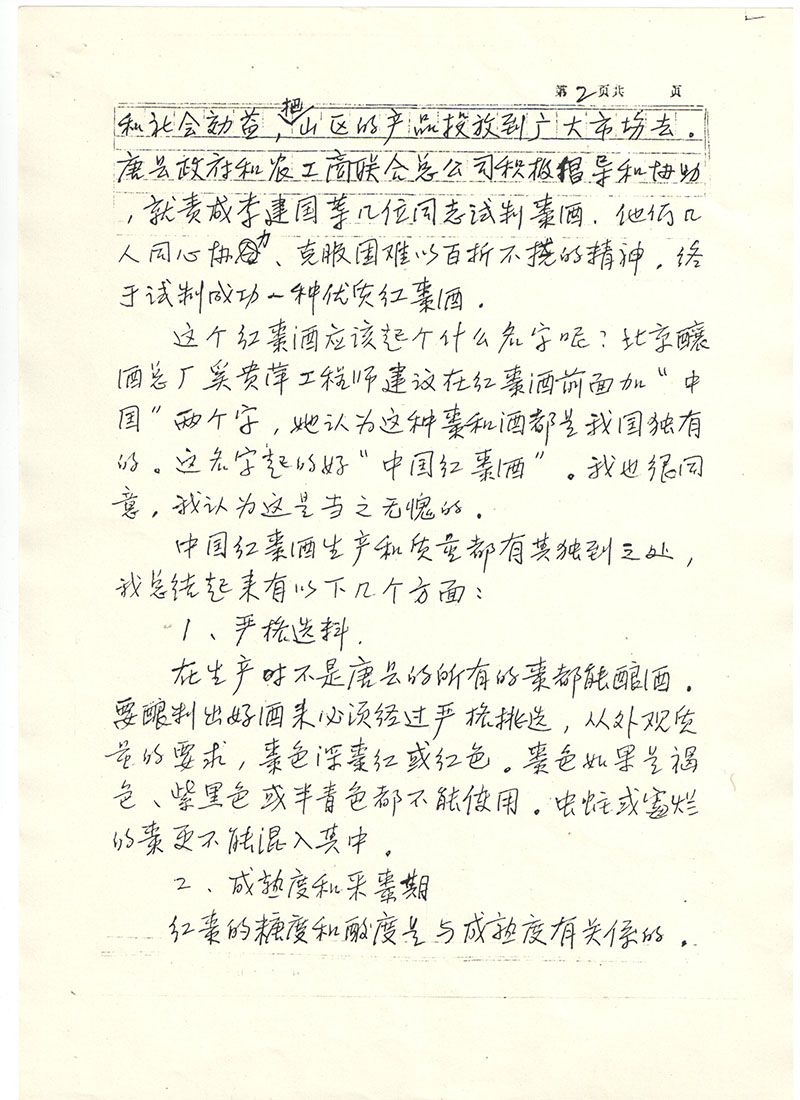 第2页共 页
和社会効益，把山区的产品投放到广大市场去。
唐县政府和农工商联合总公司积极倡导和协助
，就责成李建国等几位同志试制枣酒．他们几
人同心协力、克服困难以百折不挠的精神．终
于试制成功一种优质红枣酒．
这个红枣酒应该起个什么名字呢？北京酿
酒总厂奚贵萍工程师建议在红枣酒前面加“中
国”两个字，她认为这种枣和酒都是我国独有
的。这名字起的好“中国红枣酒”。我也很同
意，我认为这是当之无愧的．
中国红枣酒生产和质量都有其独到之处，
我总结起来有以下几个方面：
1、严格选料．
在生产时不是唐县的所有的枣都能酿酒．
要酿制出好酒来必须经过严格挑选，从外观质
量的要求，枣色深枣红或红色。枣色如果是褐
色、紫黑色或半青色都不能使用。虫蛀或霉烂
的枣更不能混入其中．
2、成熟度和采枣期
红枣的糖度和酸度是与成熟度有关系的．